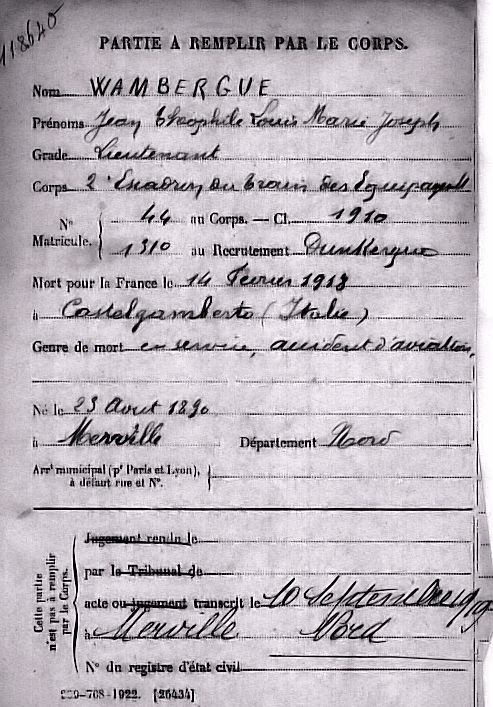 118640
PARTIE A REMPLIR PAR LE CORPS.
Nom WAMBERGUE
Prénoms Jean Théophile Louis Marie Joseph
Grade Lieutenant
Corps 2e Escadron du Train des Equipages
N° Matricule. 44 au Corps. — Cl. 1910
1310 au Recrutement Dunkerque
Mort pour la France le 14 Février 1918
à Castelgamberto (Italie)
Genre de mort en service, accident d'aviation,
Né le 23 Août 1890
à Merville Département Nord
Arrt municipal (pr Paris et Lyon),
à défaut rue et N°.
Cette partie n'est pas à remplir par le Corps.
Jugement rendu le
par le Tribunal de
acte ou jugement transcrit le 10 Septembre 1919
à Merville Nord
N° du registre d'état civil
-708-1922. [26434]